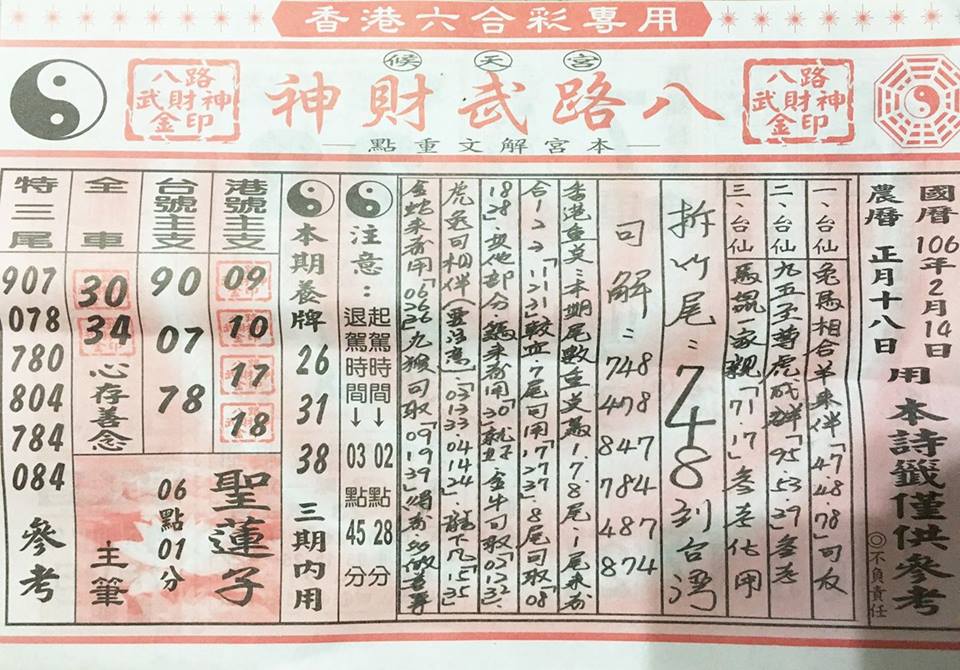 香港六合彩專用
候天宮
八路武財神
八路
武財神
金印
八路
武財神
金印
本宮解文重點
國曆106年2月14日
農曆正月十八日
用本詩籤僅供參考
◎不負責任
一、台仙 兔馬相合羊來伴「47.48.78」可友
二、台仙 九五至尊虎成群「95.53.39」參考
三、台仙 馬鼠一家親「71.17」參考化用
拆竹尾:748到台灣
司解:748 847 784
478 784 487 874
香港重点:本期尾数重点為1.7.8尾 1尾來看
合1223「112131」較立7尾可用「172737」8尾可取「08
1828」其他部分 鷄來看用「30」鼠 金牛可取「031532」
虎兔可相伴(要注意)「031533 041424」 龍下凡「1535」
金蛇來看用「062642」九猴可取「091939」
注意:
起駕時間→02點28分
退駕時間→03點45分
本期養牌 26 31 38 三期內用
港號主支
09
10
17
18
台號主支
90
07
78
全車
30
34
心存善念
聖蓮子
06點01分
主筆
特三尾
907
078
780
804
784
084
參考